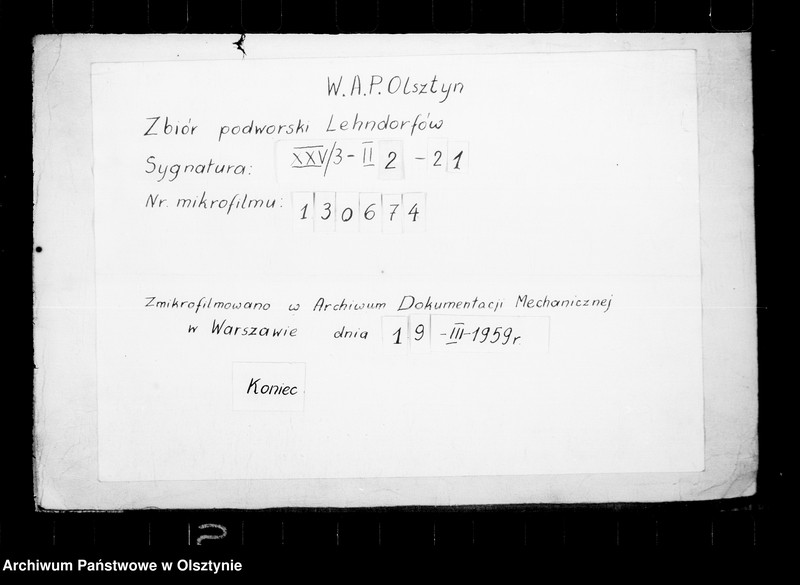 W.A.P. Olsztyn
Zbiór podworski Lehndorfów
Sygnatura: XXV/3-II 2 - 21
Nr. mikrofilmu: 130674
Zmikrofilmowano w Archiwum Dokumentacji Mechanicznej
w Warszawie dnia 19-III-1959r.
Koniec
Archiwum Państwowe w Olsztynie